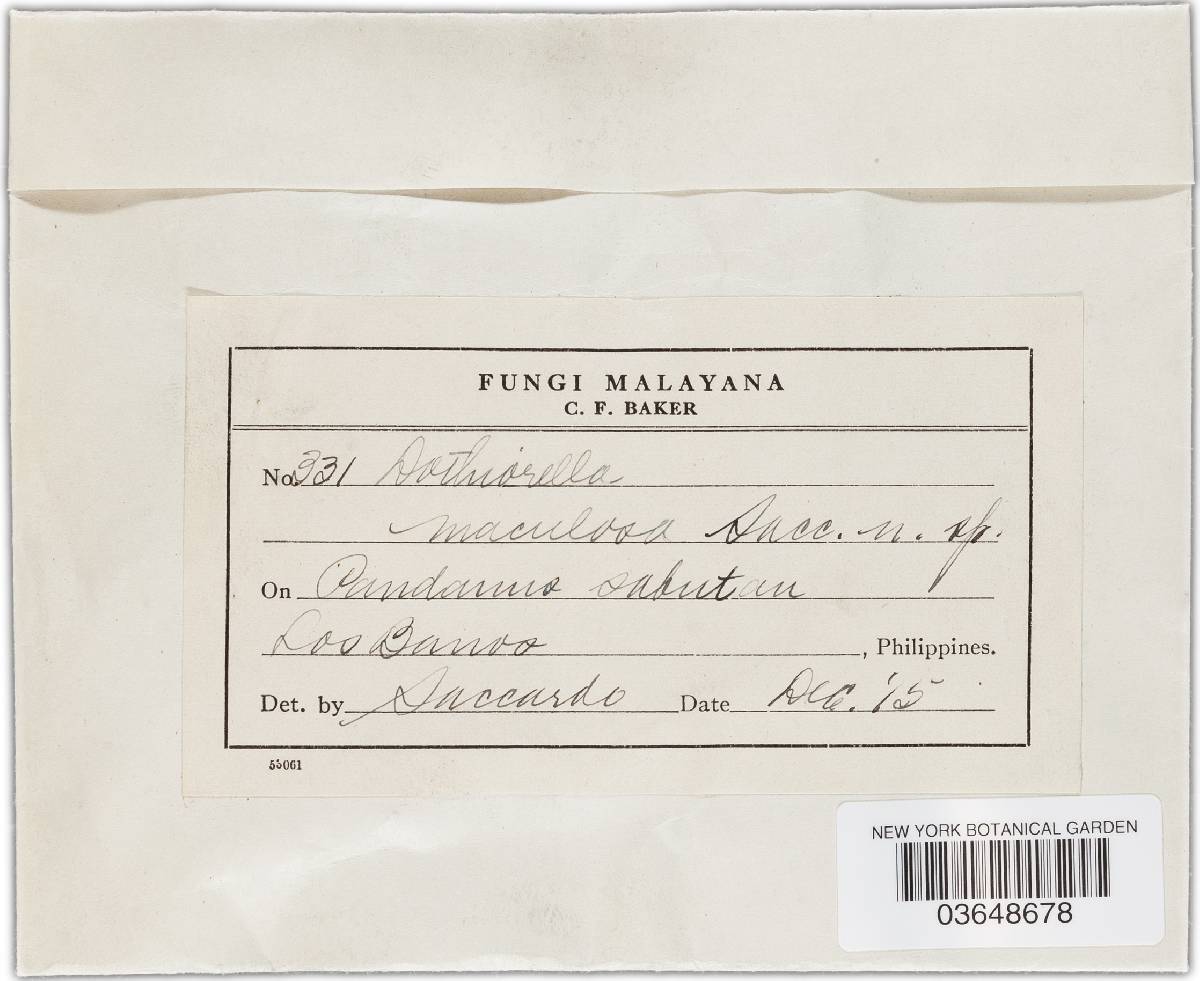 FUNGI MALAYANA
C. F. BAKER
No. 331 Dothiorella
maculosa Sacc. n. sp.
On Pandanus sabutan
Los Banos, Philippines.
Det. by Saccardo Date Dec. '15
55061
NEW YORK BOTANICAL GARDEN
03648678